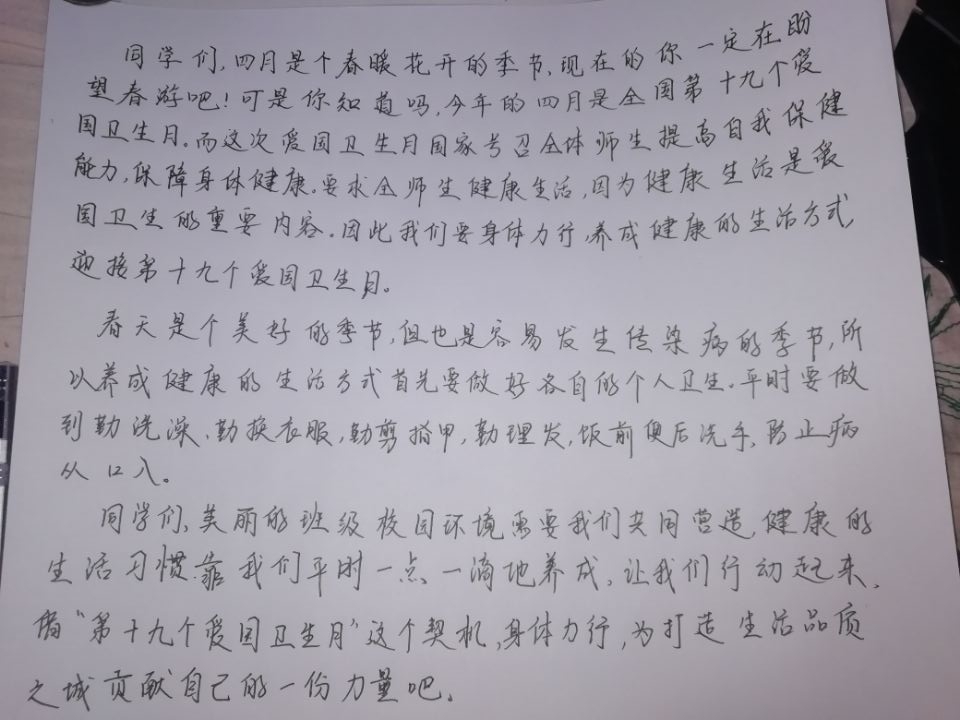 同学们,四月是个春暖花开的季节,现在的你一定在盼
望春游吧!可是你知道吗,今年的四月是全国第十九个爱
国卫生月。而这次爱国卫生月国家号召全体师生提高自我保健
能力,保障身体健康。要求全师生健康生活,因为健康生活是爱
国卫生的重要内容。因此我们要身体力行,养成健康的生活方式,
迎接第十九个爱国卫生月。
春天是个美好的季节,但也是容易发生传染病的季节,所
以养成健康的生活方式首先要做好各自的个人卫生。平时要做
到勤洗澡、勤换衣服,勤剪指甲,勤理发,饭前便后洗手,防止病
从口入。
同学们,美丽的班级校园环境需要我们共同营造,健康的
生活习惯靠我们平时一点一滴地养成,让我们行动起来,
借“第十九个爱国卫生月”这个契机,身体力行,为打造生活品质
之城贡献自己的一份力量吧。